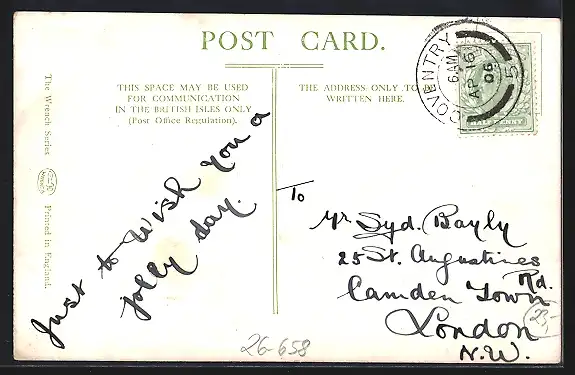 POST CARD.
THIS SPACE MAY BE USED
FOR COMMUNICATION
IN THE BRITISH ISLES ONLY
(Post Office Regulation).
THE ADDRESS ONLY TO BE
WRITTEN HERE.
COVENTRY
6 AM
AP 6
06
5
HALFPENNY
The Wrench Series
Printed in England.
Just to Wish you a
jolly day.
To
Mr Syd. Bayly
25 St. Augustines
Rd.
Camden Town
London
N.W.
26-658